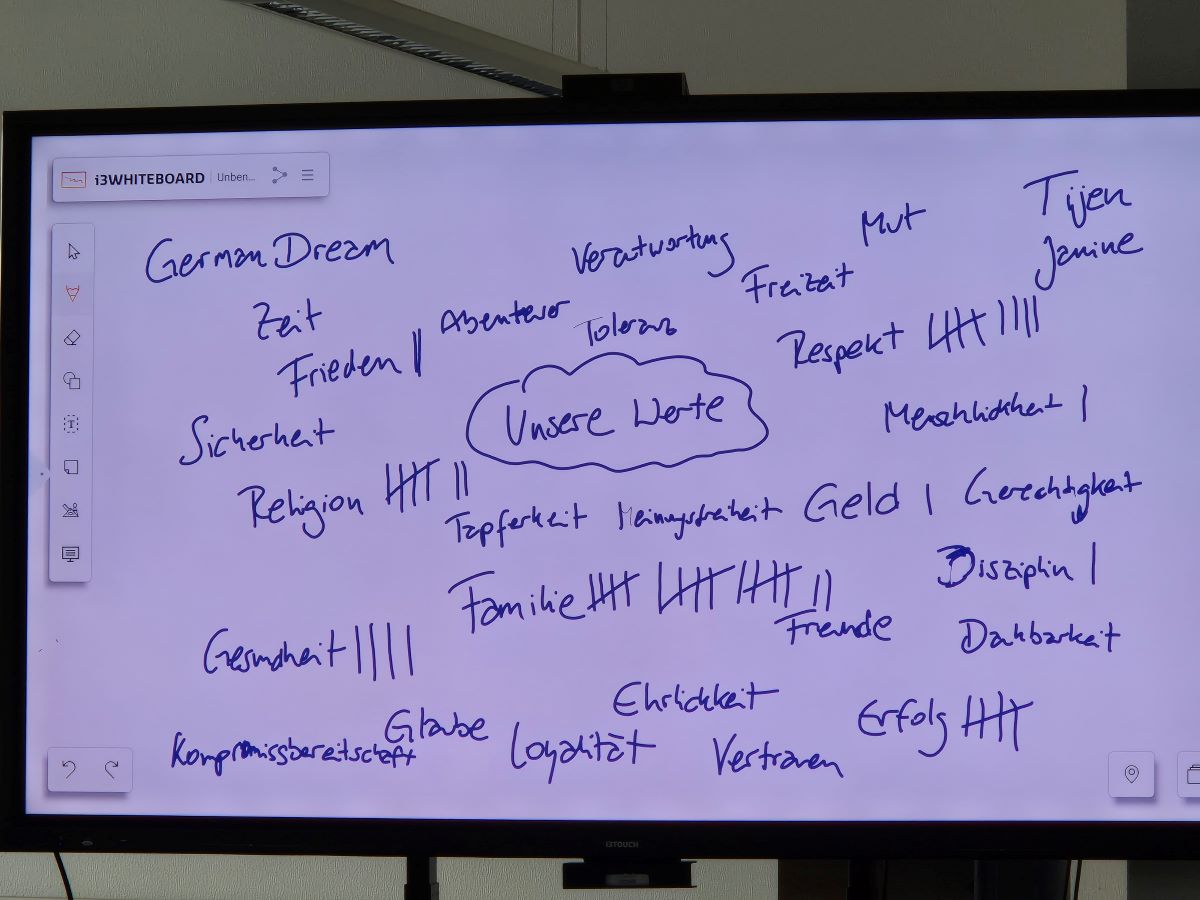 i3WHITEBOARD Unben...
German Dream
Verantwortung
Mut
Tijen
Janine
Zeit
Abenteuer
Toleranz
Freizeit
Frieden ||
Respekt |||| ||||
Unsere Werte
Menschlichkeit |
Sicherheit
Religion |||| ||
Tapferkeit
Meinungsfreiheit
Geld |
Gerechtigkeit
Familie |||| |||| |||| ||
Disziplin |
Freunde
Dankbarkeit
Gesundheit ||||
Ehrlichkeit
Glaube
Erfolg ||||
Kompromissbereitschaft
Loyalität
Vertrauen
i3TOUCH